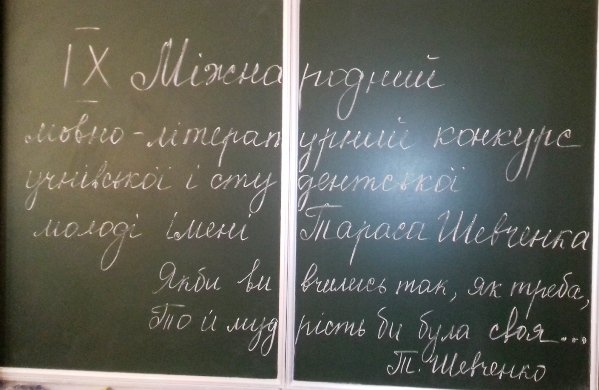 ІХ Міжнародний
мовно-літературний конкурс
учнівської і студентської
молоді імені Тараса Шевченка
Якби ви вчились так, як треба,
То й мудрість би була своя...
Т. Шевченко